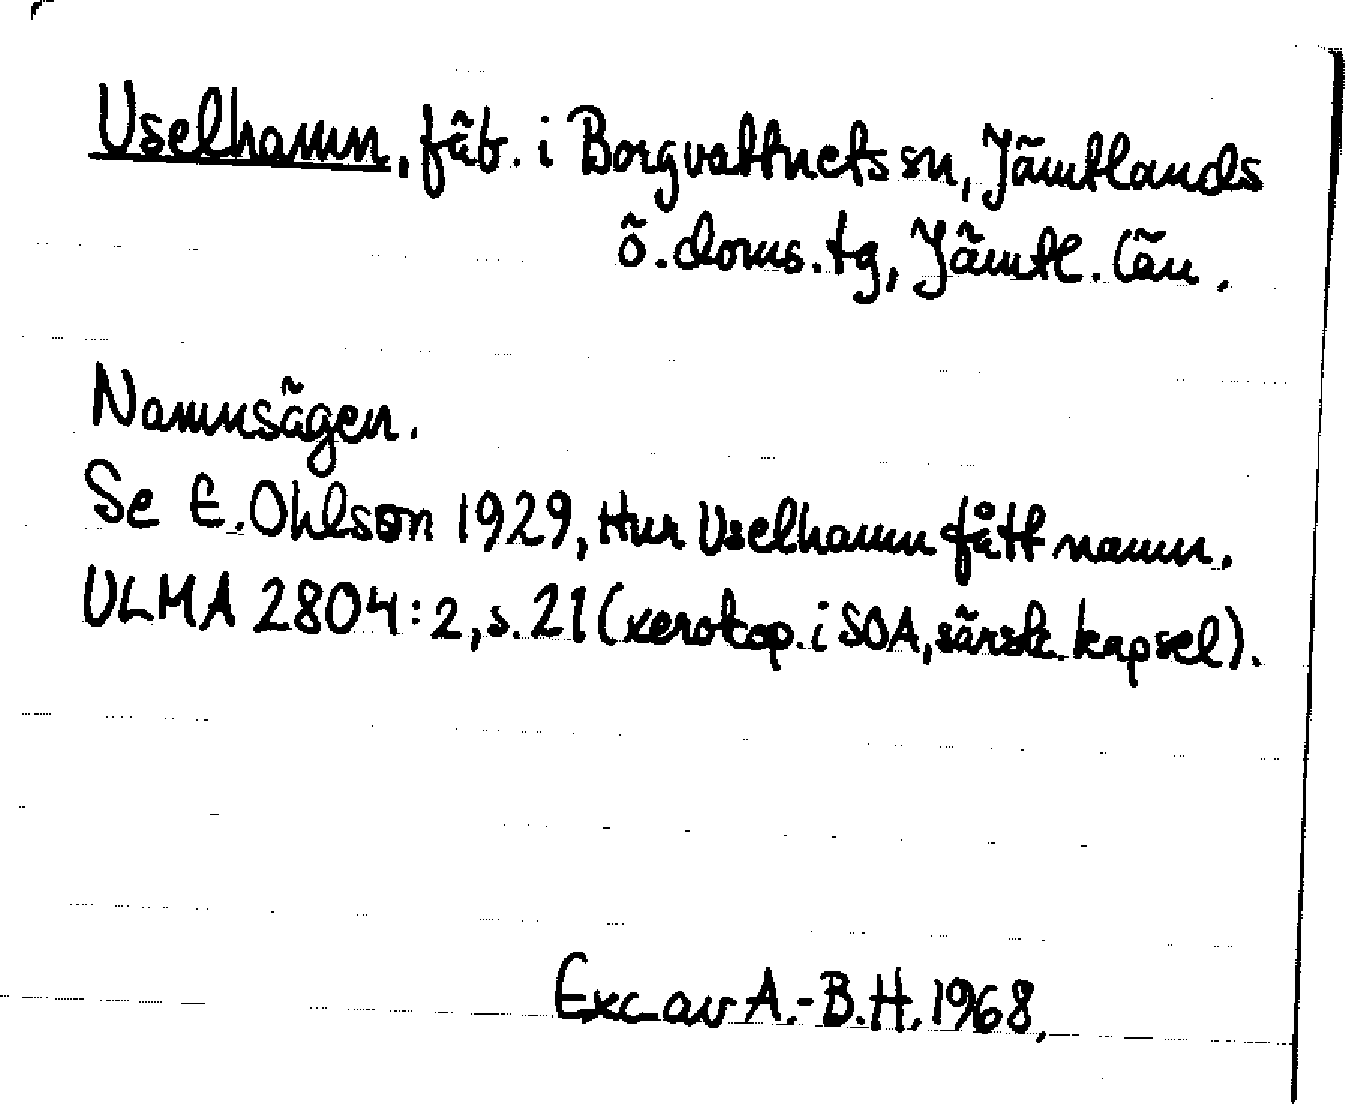 Uselhamn, fäb. i Borgvattnets sn, Jämtlands
ö. doms. tg, Jämtl. län.
Namnsägen.
Se E. Ohlson 1929, Hur Uselhamn fått namn.
ULMA 2804:2, s. 21 (xerokop. i SOA, särsk. kapsel).
Exc av A.-B.H. 1968.